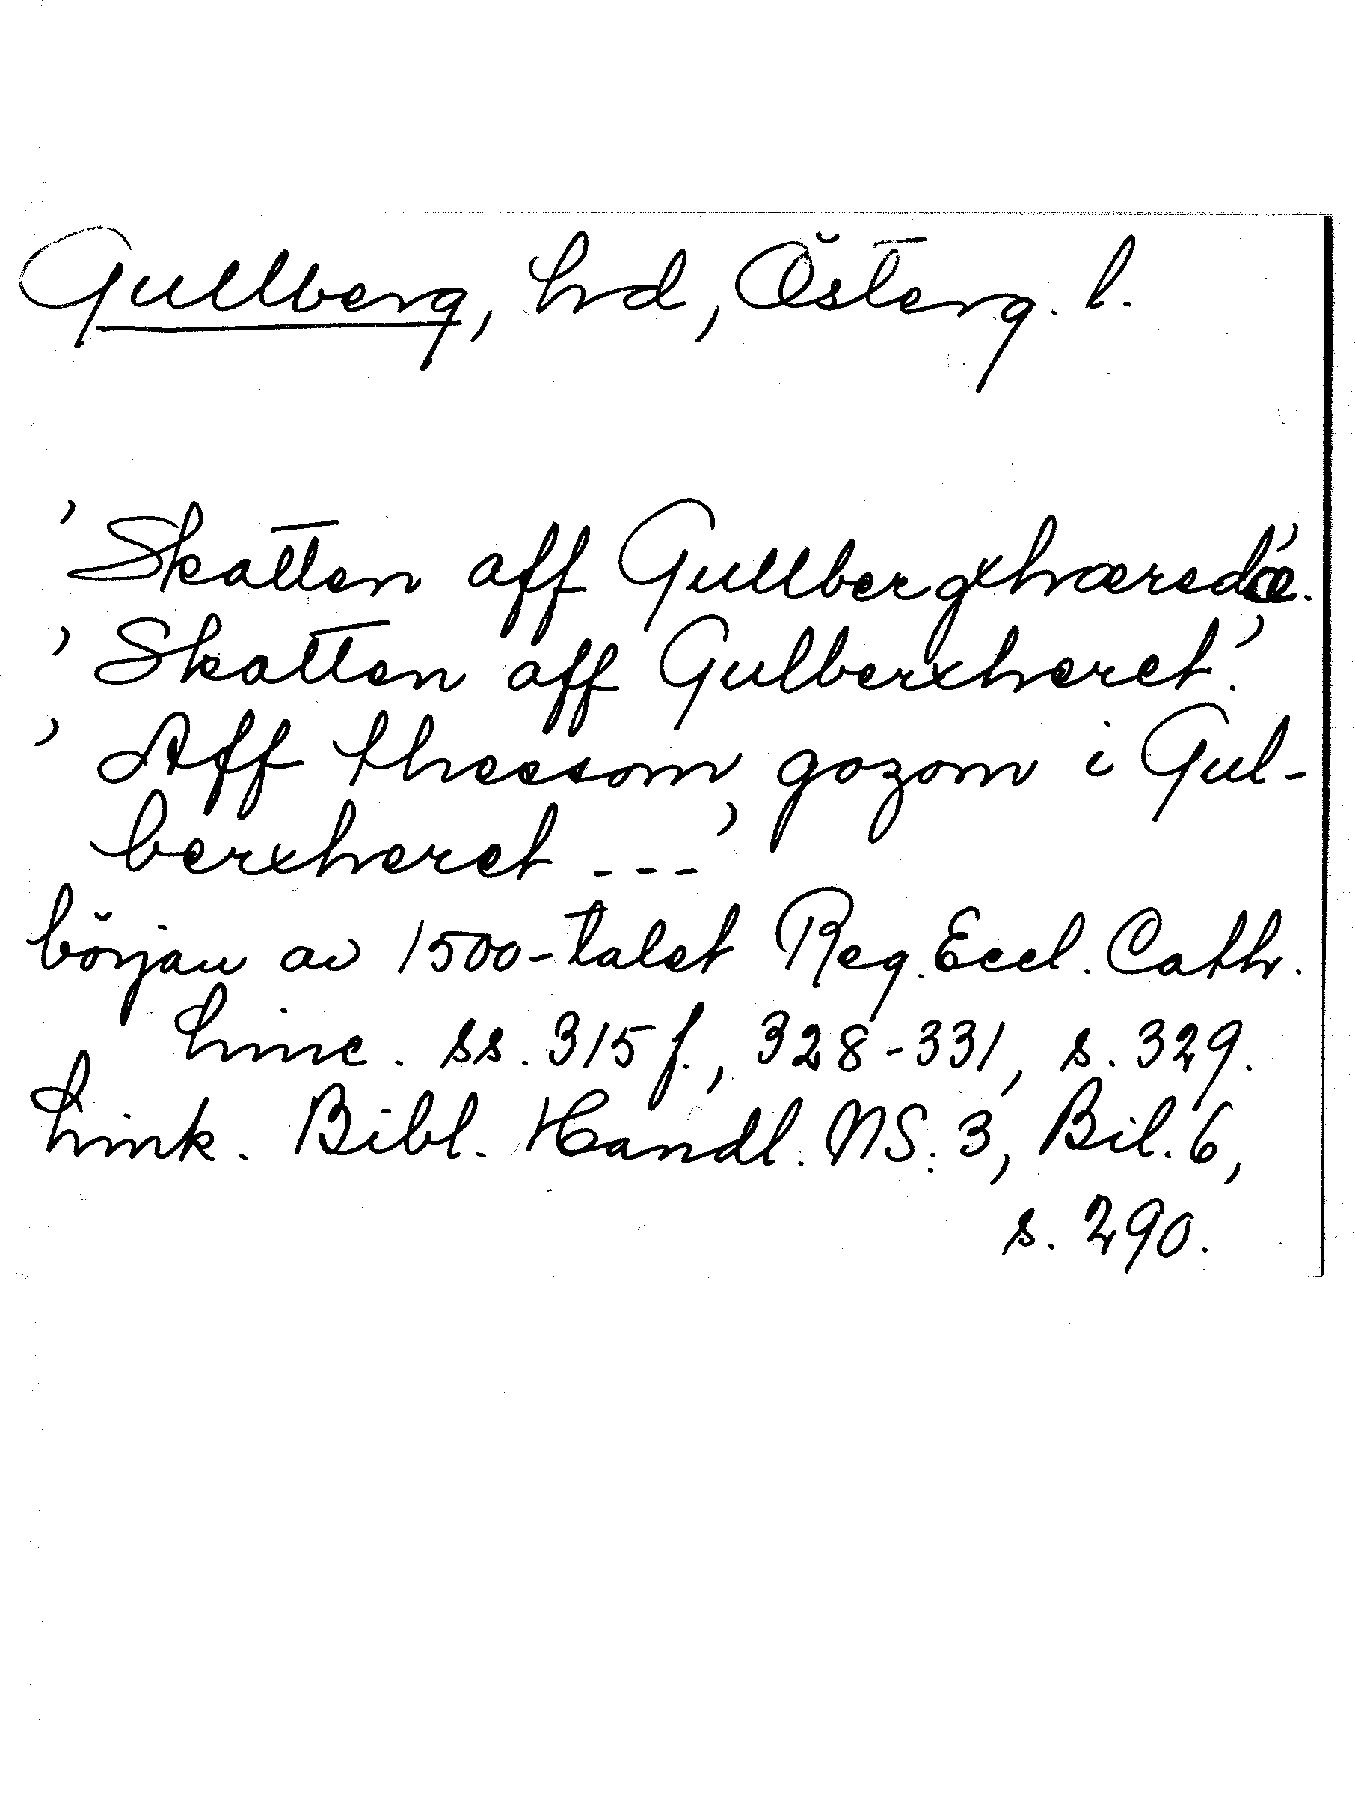 Gullberg, hd, Österg. l.
'Skatten aff Gullbergxhæredæ'.
'Skatten aff Gulberxheret'.
'Aff thessom gozom i Gul-
berxheret ---'
början av 1500-talet Reg. Eccl. Cath.
Linc. ss. 315 f., 328-331, s. 329.
Link. Bibl. Handl. NS. 3, Bil. 6,
s. 290.